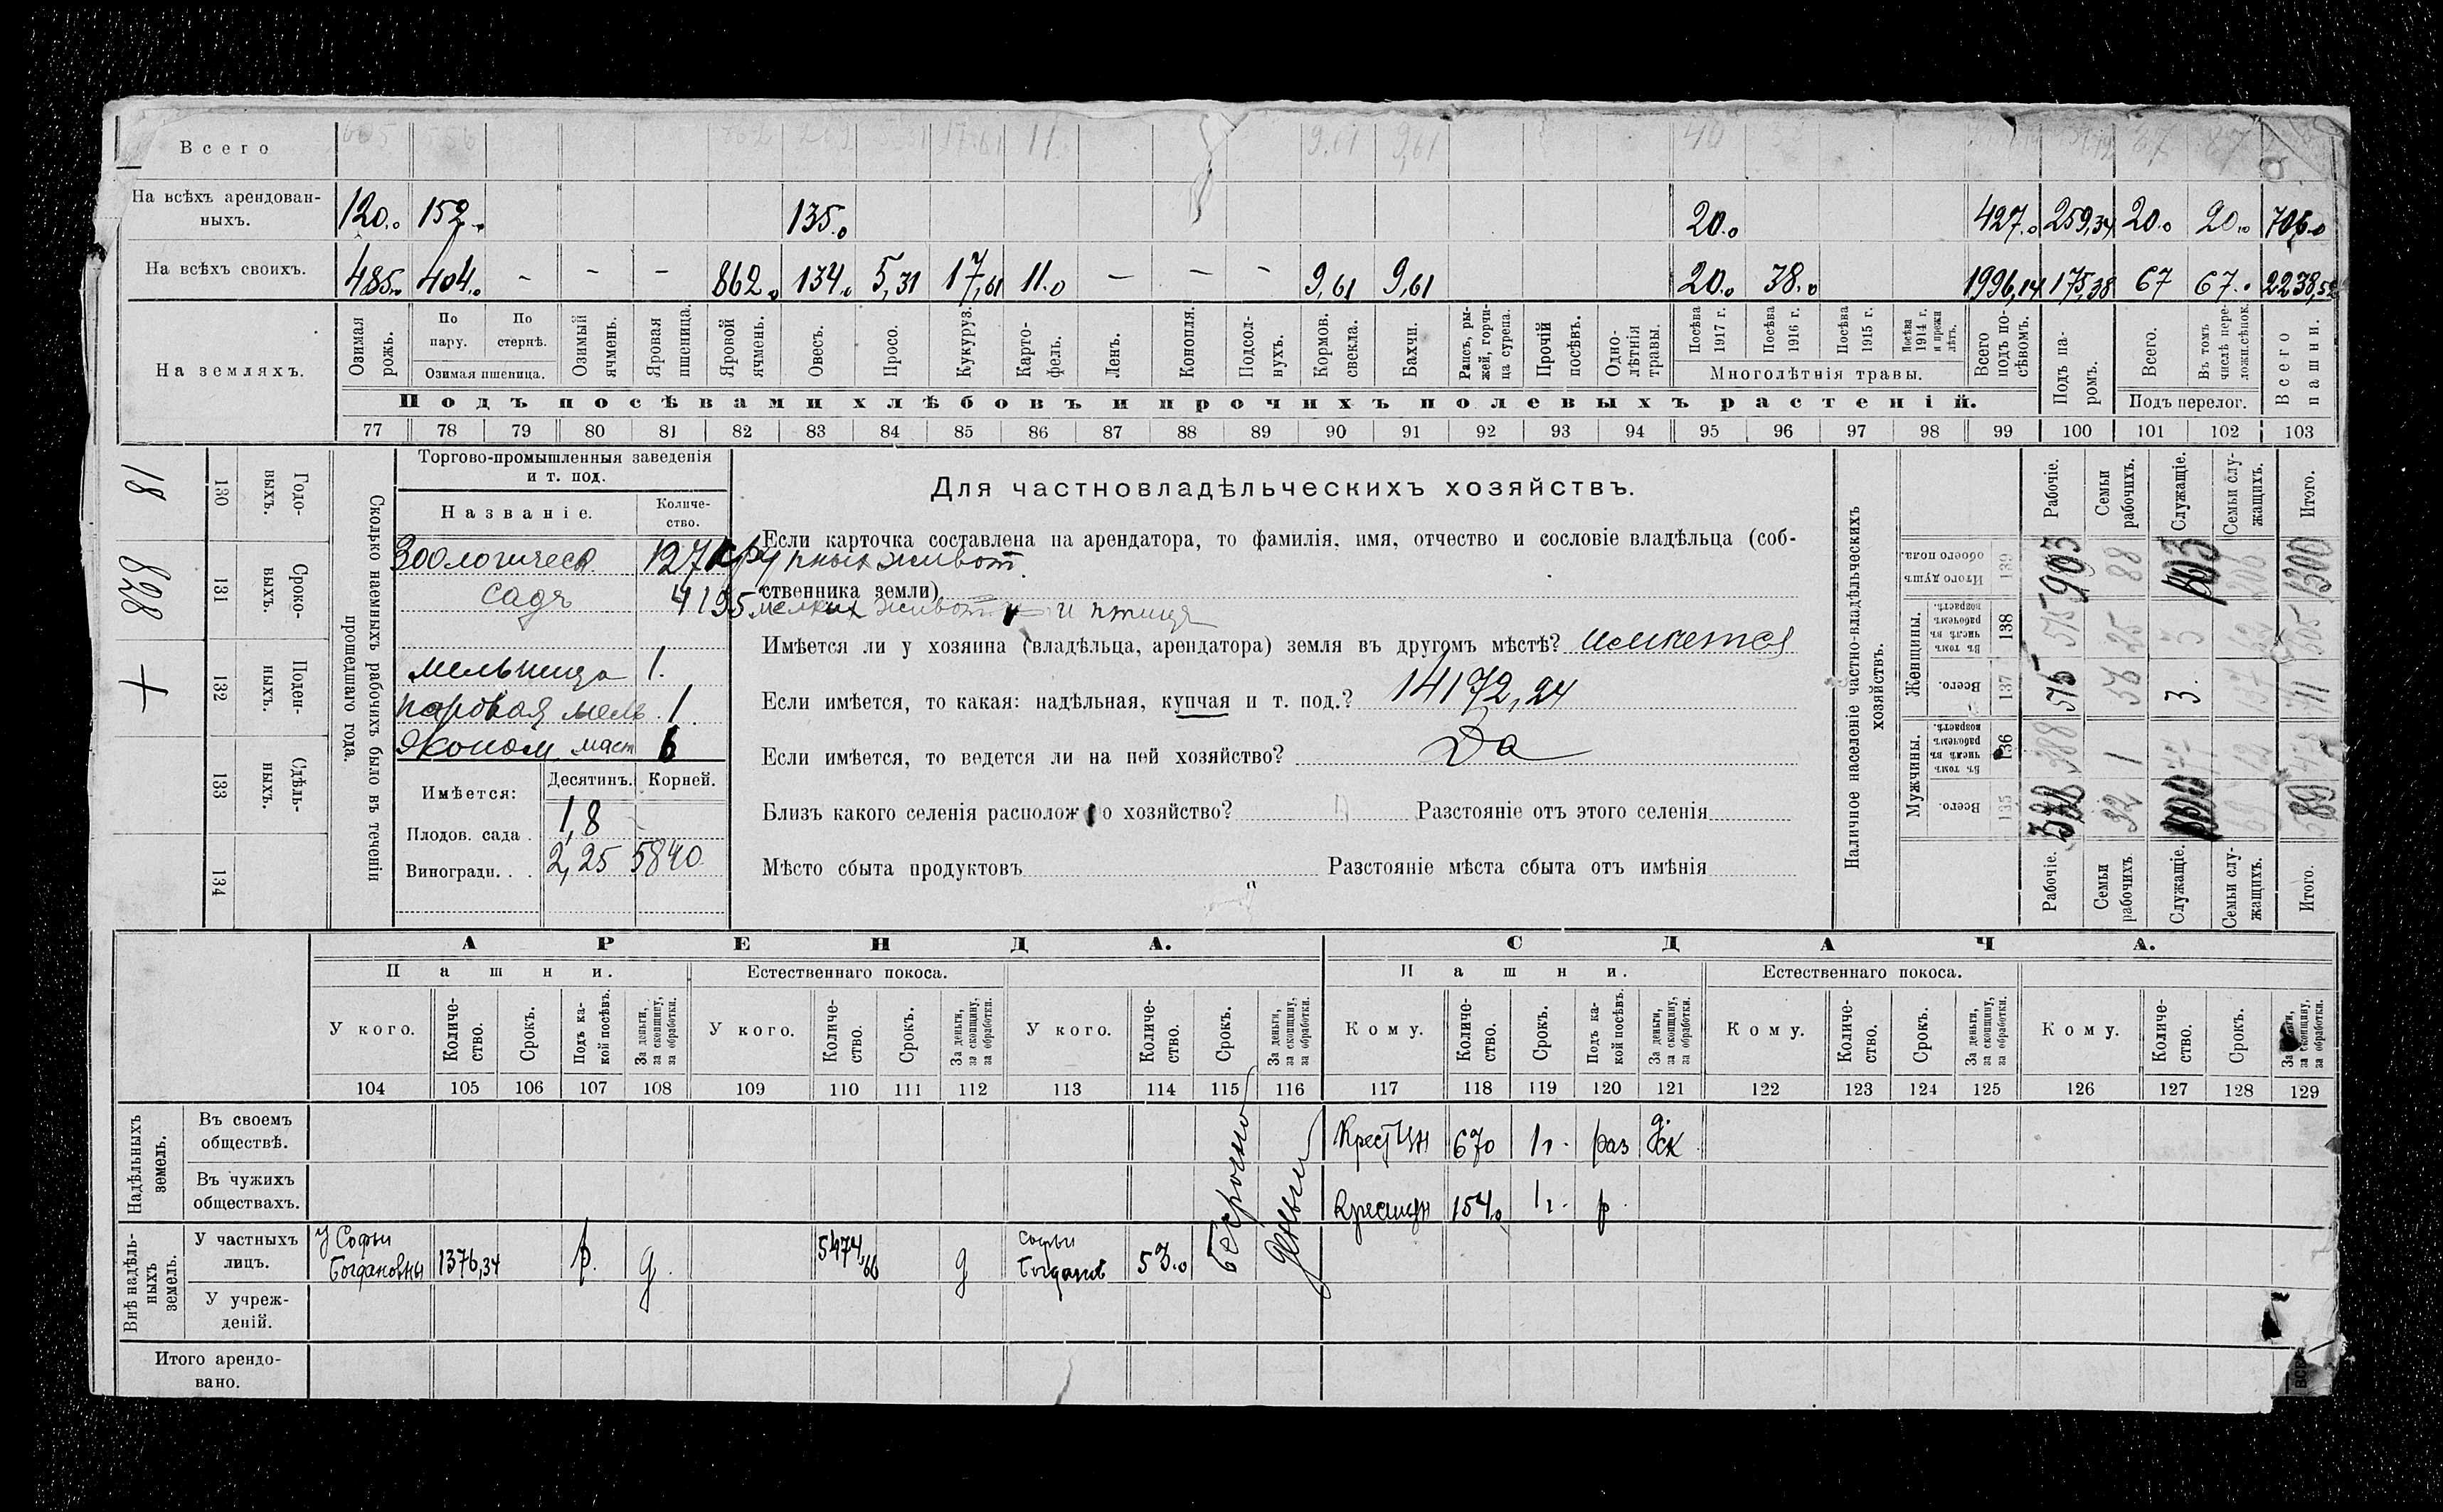 Всего 11. 9,61 9,61 40
На всѣхъ арендован-
ныхъ. 120.0 152.0 135.0 20.0 427.0 259,34 20.0 20.0 706.0
На всѣхъ своихъ. 485.0 404.0 - - - 862.0 134.0 5,31 17,61 11.0 - - - 9,61 9,61 20.0 38.0 1996,14 175,38 67 67.0 2238,52
На земляхъ. Озимая рожь. По пару. По стернѣ. Озимая пшеница. Озимый ячмень. Яровая пшеница. Яровой ячмень. Овесъ. Просо. Кукуруз. Карто-фель. Ленъ. Конопля. Подсол-нухъ. Кормов. свекла. Бахчи. Рапсъ, ры-жей, горчи-ца сурепа. Прочій посѣвъ. Одно-лѣтнія травы. Посѣва 1917 г. Посѣва 1916 г. Посѣва 1915 г. Посѣва 1914 г. и прежн лѣтъ. Многолѣтнія травы. Всего подъ по-сѣвомъ. Подъ па-ромъ. Всего. Въ томъ числѣ пере-ложн.сѣнок. Подъ перелог. Всего пашни.
Подъ посѣвами хлѣбовъ и прочихъ полевыхъ растеній.
77 78 79 80 81 82 83 84 85 86 87 88 89 90 91 92 93 94 95 96 97 98 99 100 101 102 103
18 130 Годо-выхъ.
828 131 Сроко-выхъ.
+ 132 Поден-ныхъ.
133 Сдѣль-ныхъ.
134
Сколько наемныхъ рабочихъ было въ теченіи
прошедшаго года.
Торгово-промышленныя заведенія
и т. под.
Названіе. Количе-ство.
Зоологическ. 127 крупных живот.
садъ 4195 мелких живот и птица
мельница 1.
паровая мель. 1.
Эконом. маст 6
Имѣется: Десятинъ. Корней.
Плодов. сада . 1,8 -
Виноградн. . . 2,25 5840
Для частновладѣльческихъ хозяйствъ.
Если карточка составлена на арендатора, то фамилія, имя, отчество и сословіе владѣльца (соб-
ственника земли)
Имѣется ли у хозяина (владѣльца, арендатора) земля въ другомъ мѣстѣ? имѣется
Если имѣется, то какая: надѣльная, купчая и т. под.? 14172,24
Если имѣется, то ведется ли на ней хозяйство? Да
Близъ какого селенія располож о хозяйство? Разстояніе отъ этого селенія
Мѣсто сбыта продуктовъ Разстояніе мѣста сбыта отъ имѣнія
Наличное населеніе частно-владѣльческихъ
хозяйствъ.
Рабочіе. Семьи рабочихъ. Служащіе. Семьи слу-жащихъ. Итого.
Итого душъ обоего пола. 139 903 88 103 206 1300
Женщины. Въ томъ числѣ въ рабочемъ возрастѣ. 138 515 25 3 62 605
Всего. 137 515 56 3.
Мужчины. Въ томъ числѣ въ рабочемъ возрастѣ. 136 388 1
Всего. 135 32
Рабочіе. Семьи рабочихъ. Служащіе. Семьи слу-жащихъ. Итого.
АРЕНДА. СДАЧА.
Пашни. Естественнаго покоса. Пашни. Естественнаго покоса.
У кого. Количе-ство. Срокъ. Подъ ка-кой посѣвъ. За деньги, за скопщину, за обработки. У кого. Количе-ство. Срокъ. За деньги, за скопщину, за обработки. У кого. Количе-ство. Срокъ. За деньги, за скопщину, за обработки. Кому. Количе-ство. Срокъ. Подъ ка-кой посѣвъ. За деньги, за скопщину, за обработки. Кому. Количе-ство. Срокъ. За деньги, за скопщину, за обработки. Кому. Количе-ство. Срокъ. За деньги, за скопщину, за обработки.
104 105 106 107 108 109 110 111 112 113 114 115 116 117 118 119 120 121 122 123 124 125 126 127 128 129
Надѣльныхъ земель.
Въ своемъ обществѣ. 670 1 г. раз
Въ чужихъ обществахъ. 154.0 1 г. р.
Внѣ надѣль-ныхъ земель.
У частныхъ лицъ. У Софьи Богдановны 1376,34 р. д. 5474,66 д Софьи Богданов 53.0 безсрочно деньги
У учреж-деній.
Итого арендо-
вано.